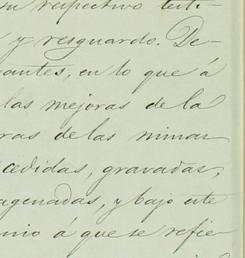 su respectivo testi-
y resguardo. De-
antes, en lo que á
las mejoras de la
ras de las mimas
cedidas, gravadas,
agenadas, y bajo este
nio á que se refie-